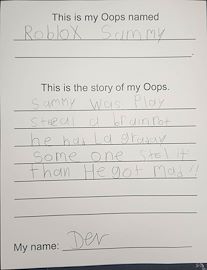 This is my Oops named
Roblox Sammy
This is the story of my Oops.
Sammy was Play
Steal a brainrot
he has La
some one Stol it
than He got mad
My name: Dev